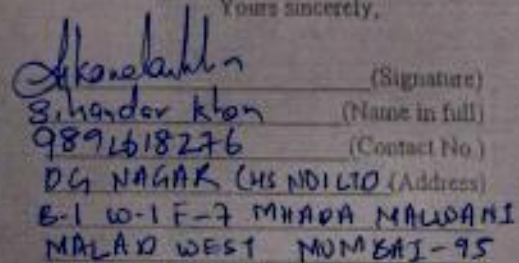 Yours sincerely,
(Signature)
Sikandar khan (Name in full)
9892618276 (Contact No.)
DG NAGAR CHS NO1LTD (Address)
B-1 W-1 F-7 MHADA MALWANI
MALAD WEST MUMBAI-95